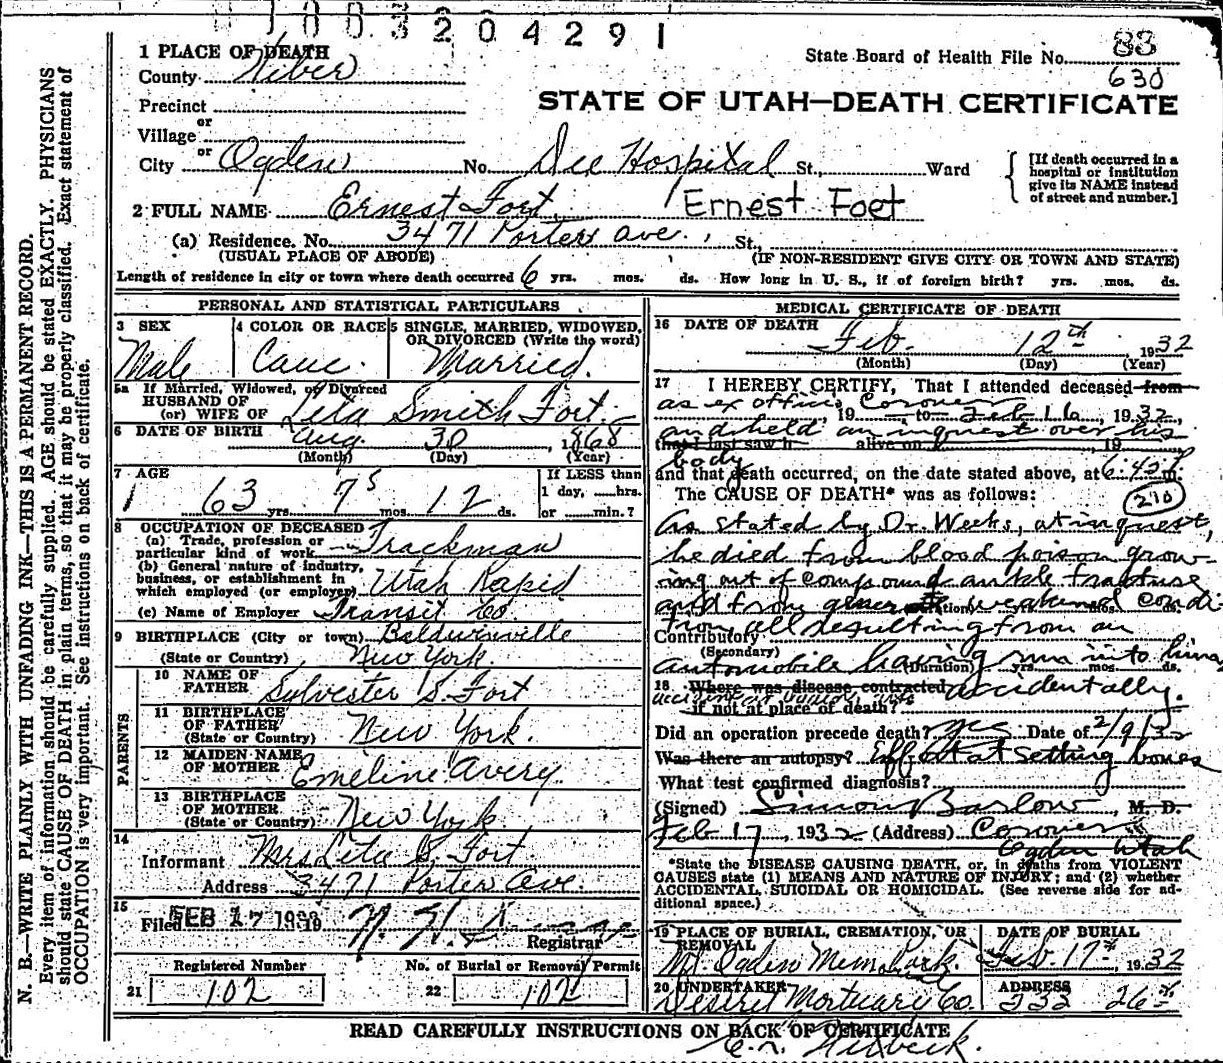 1003204291
1 PLACE OF DEATH
County Weber
State Board of Health File No. 83
630
STATE OF UTAH—DEATH CERTIFICATE
Precinct
or
Village
or
City Ogden No. Dee Hospital St., Ward
[If death occurred in a
hospital or institution
give its NAME instead
of street and number.]
2 FULL NAME Ernest Fort Ernest Foet
(a) Residence. No. 3471 Porter ave. St.,
(USUAL PLACE OF ABODE) (IF NON-RESIDENT GIVE CITY OR TOWN AND STATE)
Length of residence in city or town where death occurred 6 yrs. mos. ds. How long in U. S., if of foreign birth? yrs. mos. ds.
PERSONAL AND STATISTICAL PARTICULARS
3 SEX
Male
4 COLOR OR RACE
Cauc.
5 SINGLE, MARRIED, WIDOWED,
OR DIVORCED (Write the word)
Married.
5a If Married, Widowed, or Divorced
HUSBAND OF
(or) WIFE OF Leta Smith Fort.
6 DATE OF BIRTH Aug. 30 1868
(Month) (Day) (Year)
7 AGE
63 yrs. 5 mos. 12 ds.
If LESS than
1 day, ......hrs.
or ......min.?
8 OCCUPATION OF DECEASED
(a) Trade, profession or
particular kind of work Trackman
(b) General nature of industry,
business, or establishment in
which employed (or employer) Utah Rapid
(c) Name of Employer Transit Co.
9 BIRTHPLACE (City or town) Baldwinville
(State or Country) New York.
PARENTS
10 NAME OF
FATHER Sylvester S. Fort
11 BIRTHPLACE
OF FATHER
(State or Country) New York.
12 MAIDEN NAME
OF MOTHER Emeline Avery.
13 BIRTHPLACE
OF MOTHER
(State or Country) New York
14
Informant Mrs Leta S. Fort
Address 3471 Porter Ave.
15
Filed FEB 17 19
Registrar
Registered Number
21 102
No. of Burial or Removal Permit
22 102
MEDICAL CERTIFICATE OF DEATH
16 DATE OF DEATH
Feb. 12th 1932
(Month) (Day) (Year)
17 I HEREBY CERTIFY, That I attended deceased from
as ex officio Coroner, 19 to Feb 16, 1932,
and held an inquest over his
that I last saw h alive on 19
body
and that death occurred, on the date stated above, at 6:45 P.
The CAUSE OF DEATH* was as follows:
210
As stated by Dr. Weeks, at inquest,
he died from blood poison grow-
ing out of compound ankle fracture
and from general weakened condi
tion all resulting from an
Contributory
(Secondary)
automobile having run into him,
(duration) yrs. mos. ds.
18 Where was disease contracted accidentally.
if not at place of death?
Did an operation precede death? yes Date of 2/9/32
Was there an autopsy? Effort at setting bones
What test confirmed diagnosis?
(Signed) Simon Barlow M. D.
Feb 17, 1932 (Address) Coroner
Ogden Utah
*State the DISEASE CAUSING DEATH, or, in deaths from VIOLENT
CAUSES state (1) MEANS AND NATURE OF INJURY; and (2) whether
ACCIDENTAL, SUICIDAL OR HOMICIDAL. (See reverse side for ad-
ditional space.)
19 PLACE OF BURIAL, CREMATION, OR
REMOVAL
Mt. Ogden Mem. Park.
DATE OF BURIAL
Feb. 17th, 1932
20 UNDERTAKER
Deseret Mortuary Co.
ADDRESS
332 26th
READ CAREFULLY INSTRUCTIONS ON BACK OF CERTIFICATE
N. B.—WRITE PLAINLY WITH UNFADING INK—THIS IS A PERMANENT RECORD.
Every item of information should be carefully supplied. AGE should be stated EXACTLY. PHYSICIANS
should state CAUSE OF DEATH in plain terms, so that it may be properly classified. Exact statement of
OCCUPATION is very important. See instructions on back of certificate.